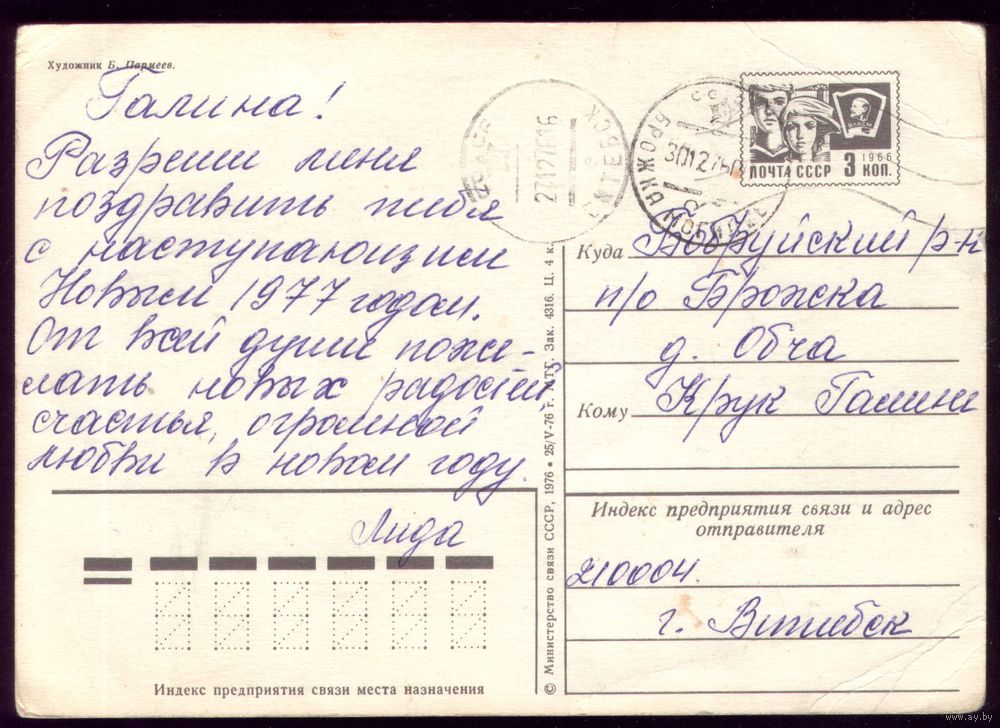 Художник Б. Пармеев.
Галина!
Разреши меня
поздравить тебя
с наступающим
Новым 1977 годом.
От всей души поже-
лать новых радостей,
счастья, огромной
любви в новом году.
Лида
Индекс предприятия связи места назначения
© Министерство связи СССР, 1976 • 25/V-76 г. МТГ. Зак. 4316. Ц. 4 к.
27127616
301276
1966
ВЛКСМ
ПОЧТА СССР 3 КОП.
Куда Бобруйский р-н
п/о Брожска
д. Обча
Кому Крук Галине
Индекс предприятия связи и адрес
отправителя
210004.
г. Витебск
www.ay.by